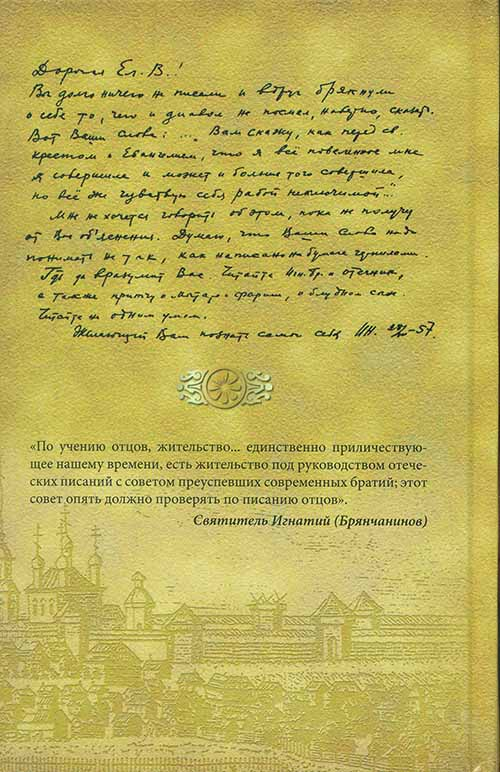 Дорогая Ел. В.!
Вы долго ничего не писали и вдруг брякнули
о себе то, чего и диавол не посмел, наверно, сказать.
Вот Ваши слова: „... Вам скажу, как перед св.
крестом и Евангелием, что я всё повеленное мне
я совершила и может и больше того совершила,
но всё же чувствую себя рабой неключимой"...
Мне не хочется говорить об этом, пока не получу
от Вас об'яснения. Думаю, что Ваши слова надо
понимать не так, как написано на бумаге чернилами.
Гдь да вразумит Вас. Читайте Игн. Бр. и отечник,
а также притчу о мытаре и фарис., о блудном сыне.
Читайте не одним умом.
Желающий Вам познать самое себя ИН. –57.
«По учению отцов, жительство... единственно приличествую-
щее нашему времени, есть жительство под руководством отече-
ских писаний с советом преуспевших современных братий; этот
совет опять должно проверять по писанию отцов».
Святитель Игнатий (Брянчанинов)